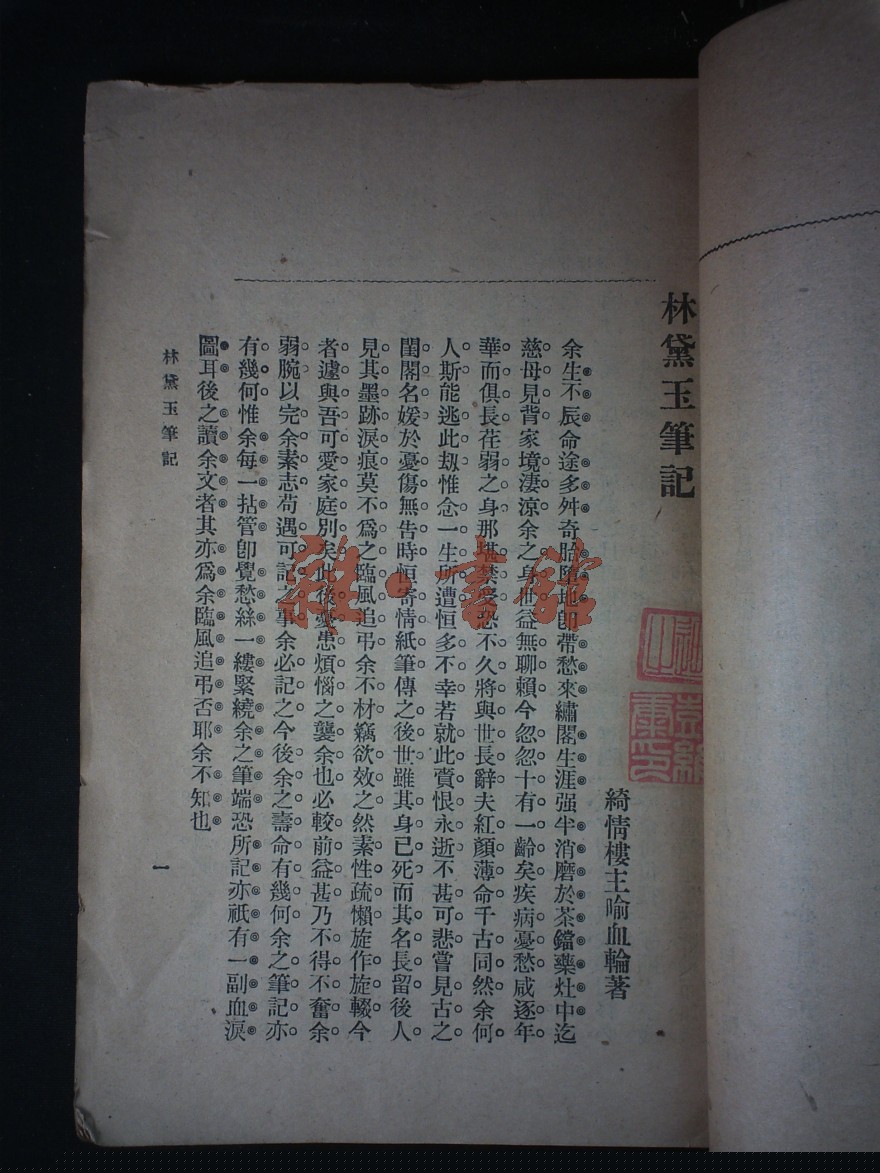 林黛玉筆記
綺情樓主喻血輪著
余生不辰命途多舛奇胎墮地卽帶愁來繡閣生涯强半消磨於茶鐺藥灶中迄
慈母見背家境淒涼余之身世益無聊賴今忽忽十有一齡矣疾病憂愁咸逐年
華而俱長荏弱之身那堪禁受恐不久將與世長辭夫紅顏薄命千古同然余何
人斯能逃此刼惟念一生所遭恒多不幸若就此賫恨永逝不甚可悲嘗見古之
閨閣名媛於憂傷無告時恒寄情紙筆傳之後世雖其身已死而其名長留後人
見其墨跡淚痕莫不爲之臨風追弔余不材竊欲效之然素性疏懶旋作旋輟今
者遽與吾可愛家庭別矣此後憂患煩惱之襲余也必較前益甚乃不得不奮余
弱腕以完余素志苟遇可記之事余必記之今後余之壽命有幾何余之筆記亦
有幾何惟余每一拈管卽覺愁絲一縷緊繞余之筆端恐所記亦祇有一副血淚
圖耳後之讀余文者其亦爲余臨風追弔否耶余不知也
林黛玉筆記
一
雜·書館